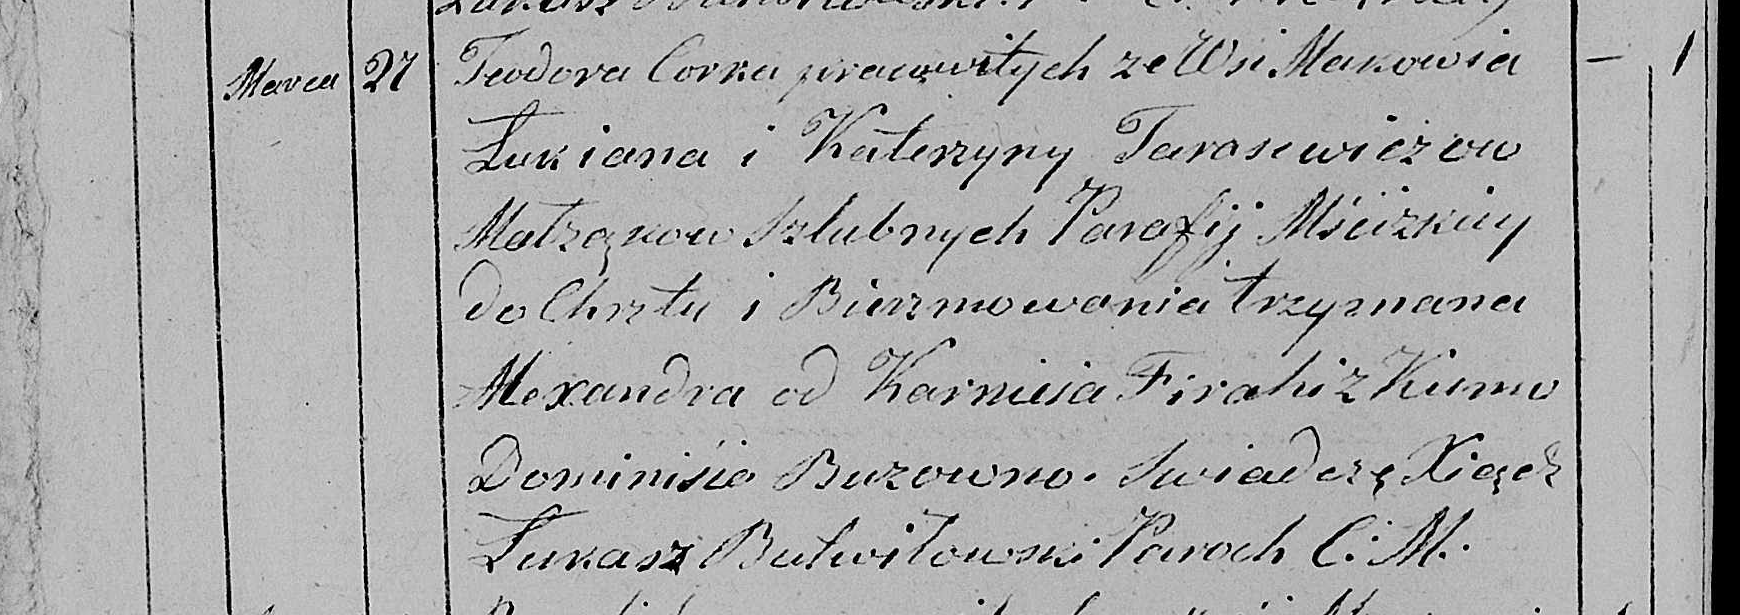 Marca 27 Teodora Corka pracowitych ze Wsi Makowia — 1
Łukiana i Katerzyny Tarasewiczow
Małżąkow Szlubnych Parafij Mścizkiey
do Chrztu i Bierzmowania trzymana
Alexandra od Karnieia Firahi z Kumo
Dominisia Buzowno. Swiadczę Xiądz
Łukasz Butwiłowski Paroch C. M.